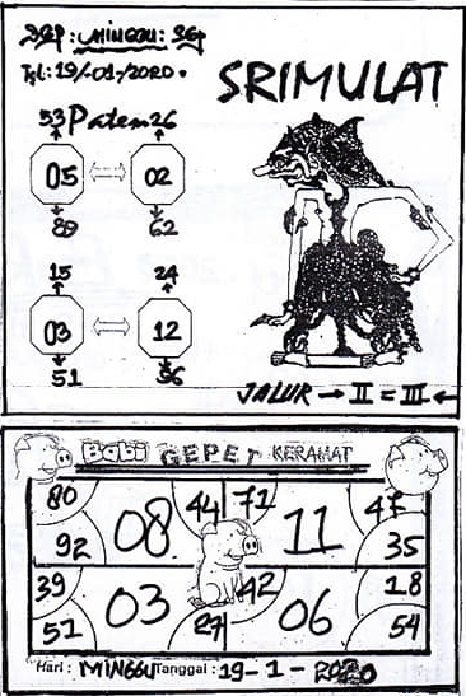 SGP: MINGGU: SGP
Tgl: 19/-01-/2020.
SRIMULAT
53 Paten 26
05 02
89 62
15 24
03 12
51 56
JALUR → II = III ←
Babi GEPET KERAMAT
80 44 71 47
08. 11
92 35
39 42 18
03 06
51 27 54
Hari: MINGGU Tanggal: 19-1-2020